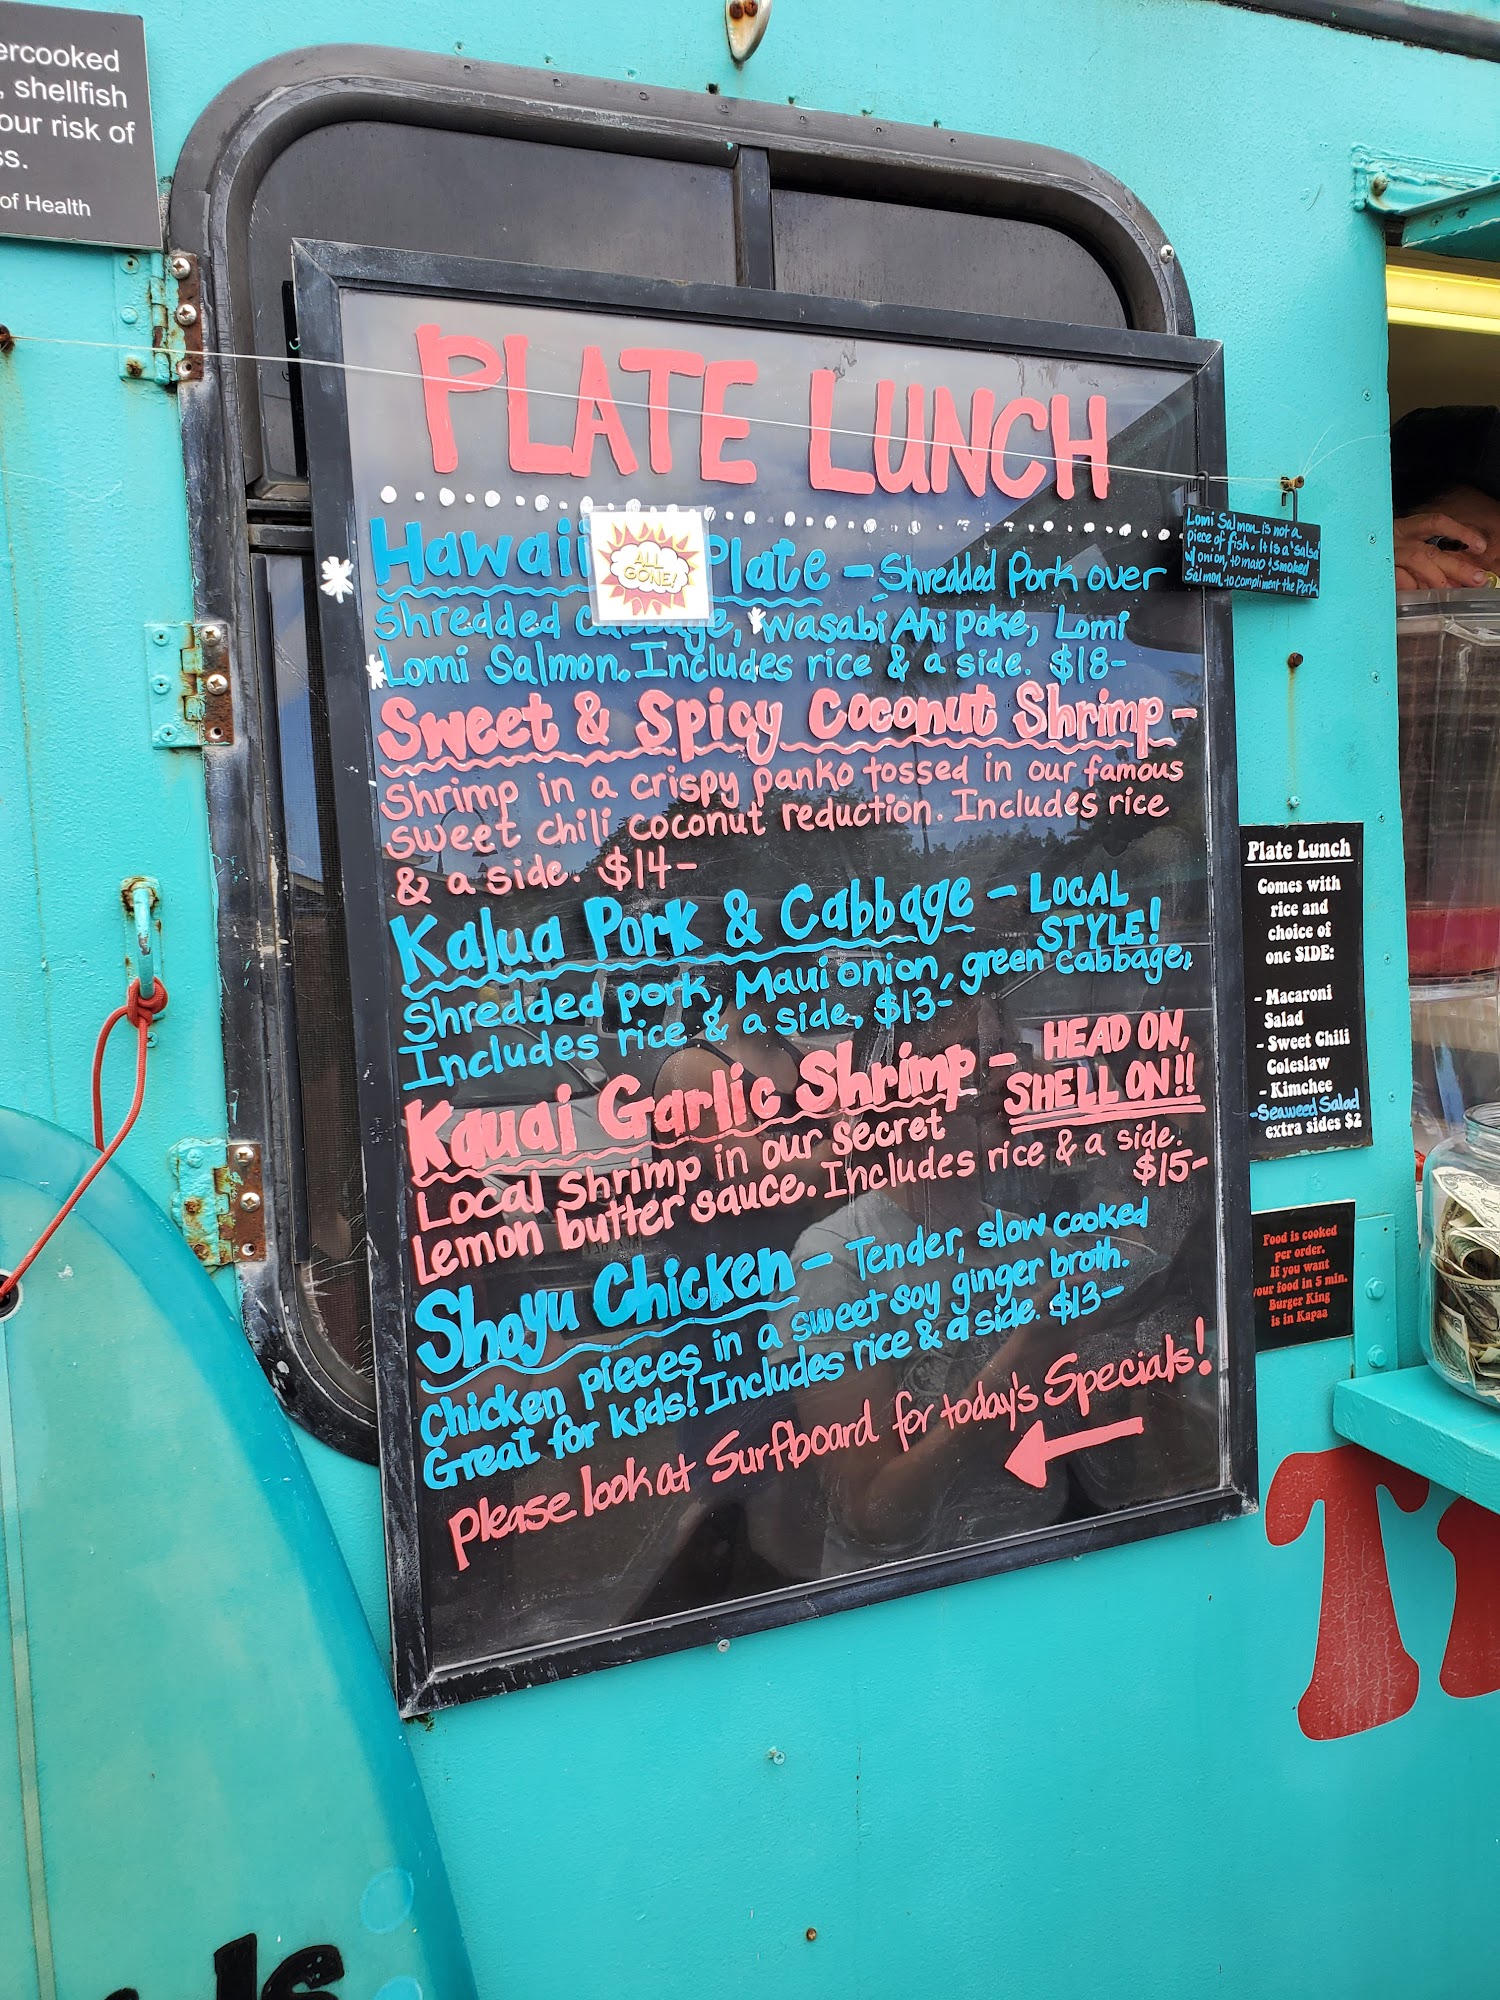 ercooked
, shellfish
our risk of
ss.
of Health
PLATE LUNCH
Plate - Shredded Pork over
ALL
GONE!
Shredded Cabbage, Wasabi Ahi poke, Lomi
Lomi Salmon. Includes rice & a side. $18-
Sweet & Spicy Coconut Shrimp -
Shrimp in a crispy panko tossed in our famous
sweet chili coconut reduction. Includes rice
& a side. $14-
Kalua Pork & Cabbage - LOCAL
STYLE!
Shredded pork, Maui onion, green cabbage,
Includes rice & a side, $13-
Kauai Garlic Shrimp - HEAD ON,
SHELL ON!!
Local Shrimp in our secret
lemon butter sauce. Includes rice & a side.
$15-
Shoyu Chicken - Tender, slow cooked
chicken pieces in a sweet soy ginger broth.
Great for kids! Includes rice & a side. $13-
Please look at Surfboard for today's Specials!
Lomi Salmon is not a
piece of fish. It is a 'salsa'
w/ onion, tomato & smoked
Salmon to compliment the Pork
Plate Lunch
Comes with
rice and
choice of
one SIDE:
- Macaroni
Salad
- Sweet Chili
Coleslaw
- Kimchee
-Seaweed Salad
extra sides $2
Food is cooked
per order.
If you want
your food in 5 min.
Burger King
is in Kapaa